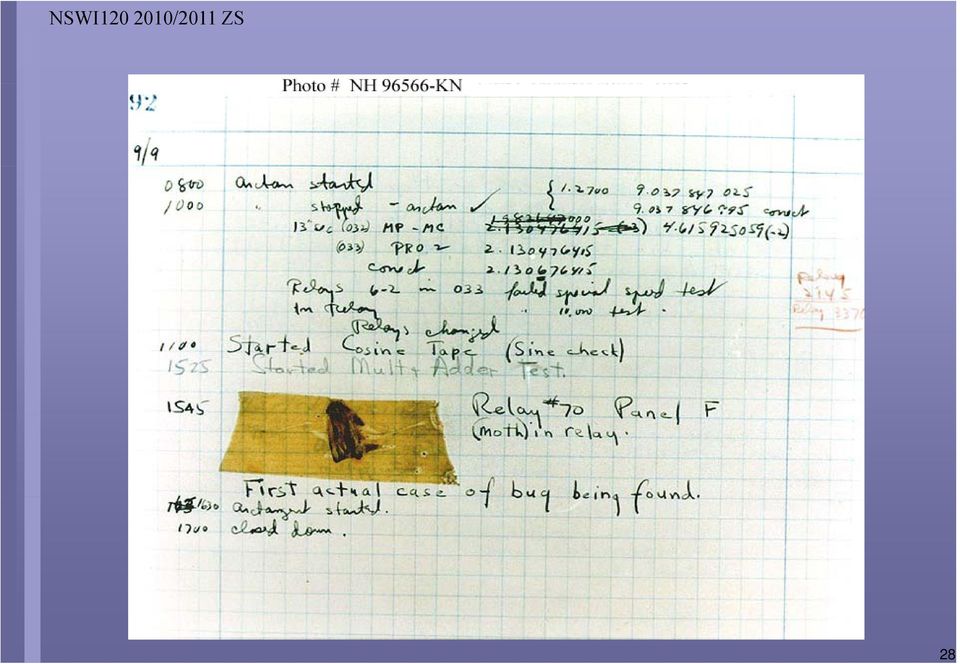 NSWI120 2010/2011 ZS
Photo # NH 96566-KN
92
9/9
0800 Antan started { 1.2700 9.037 847 025
1000 " stopped - antan ✓ 9.037 846 795 correct
13"uc (032) MP - MC 2.130476415 4.615925059(-2)
(033) PRO 2 2.130476415
correct 2.130676415
Relays 6-2 in 033 failed special speed test
In Relay " 10,000 test.
Relay 2145
Relay 3370
Relays changed
1100 Started Cosine Tape (Sine check)
1525 Started Mult + Adder Test.
1545 Relay #70 Panel F
(moth) in relay.
First actual case of bug being found.
1630 antangent started.
1700 closed down.
28